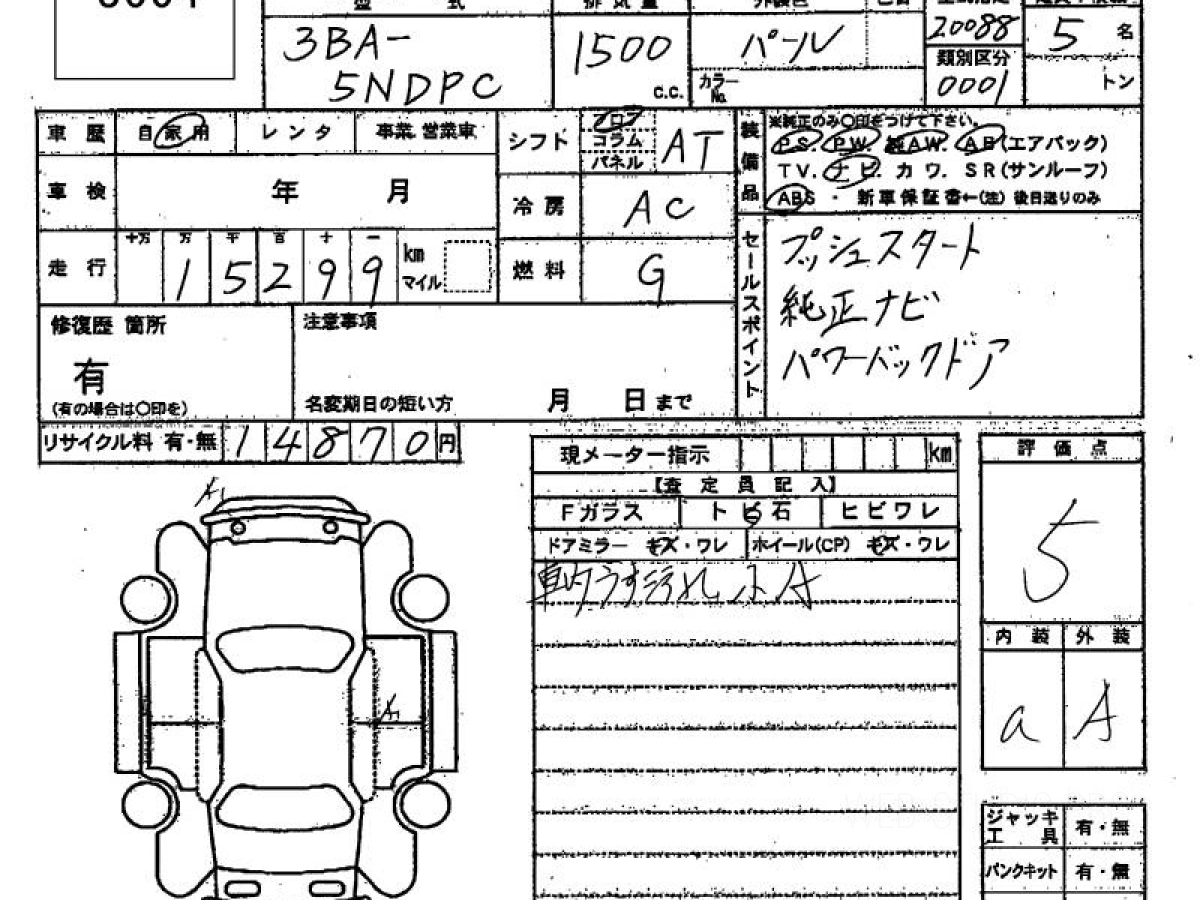 3BA-
5NDPC
1500
C.C.
パール
カラー
No.
20088
類別区分
0001
5 名
トン
車歴 自家用 レンタ 事業.営業車
車検 年 月
走行 十万 万 千 百 十 一
1 5 2 9 9
km
マイル
シフト フロア
コラム
パネル
AT
冷房 AC
燃料 G
装備品
※純正のみ○印をつけて下さい。
PS. PW. 純AW. AB(エアバック)
TV. ナビ. カワ. SR(サンルーフ)
ABS ・ 新車保証書←(注) 後日送りのみ
セールスポイント
プッシュスタート
純正ナビ
パワーバックドア
修復歴 箇所
有
(有の場合は○印を)
注意事項
名変期日の短い方 月 日まで
リサイクル料 有・無 1 4 8 7 0 円
現メーター指示 km
【査定員記入】
Fガラス トビ石 ヒビワレ
ドアミラー キズ・ワレ ホイール(CP) キズ・ワレ
車内うす汚れ 小A
評価点
5
内装 外装
a A
A1
A1
ジャッキ
工具 有・無
パンクキット 有・無